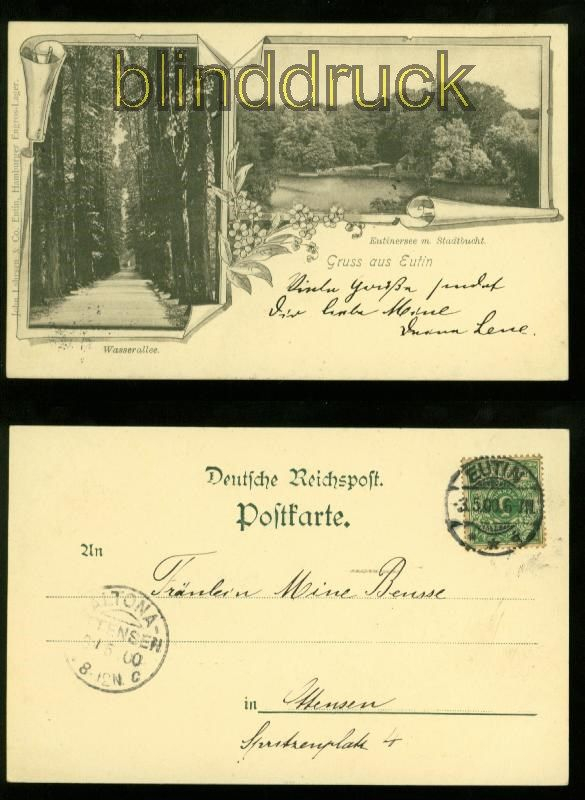 blinddruck
John Lührsen & Co. Eutin, Hamburger Engros-Lager.
Eutinersee m. Stadtbucht.
Gruss aus Eutin
Viele Grüße sendet
Dir liebe Mine
Deine Lene.
Wasserallee.
Deutsche Reichspost.
Postkarte.
EUTIN
3.5.00.6-7N.
An
Fräulein Mine Bensse
ALTONA-
OTTENSEN
00
8-12N. C
in Ottensen
Spritzenplatz 4